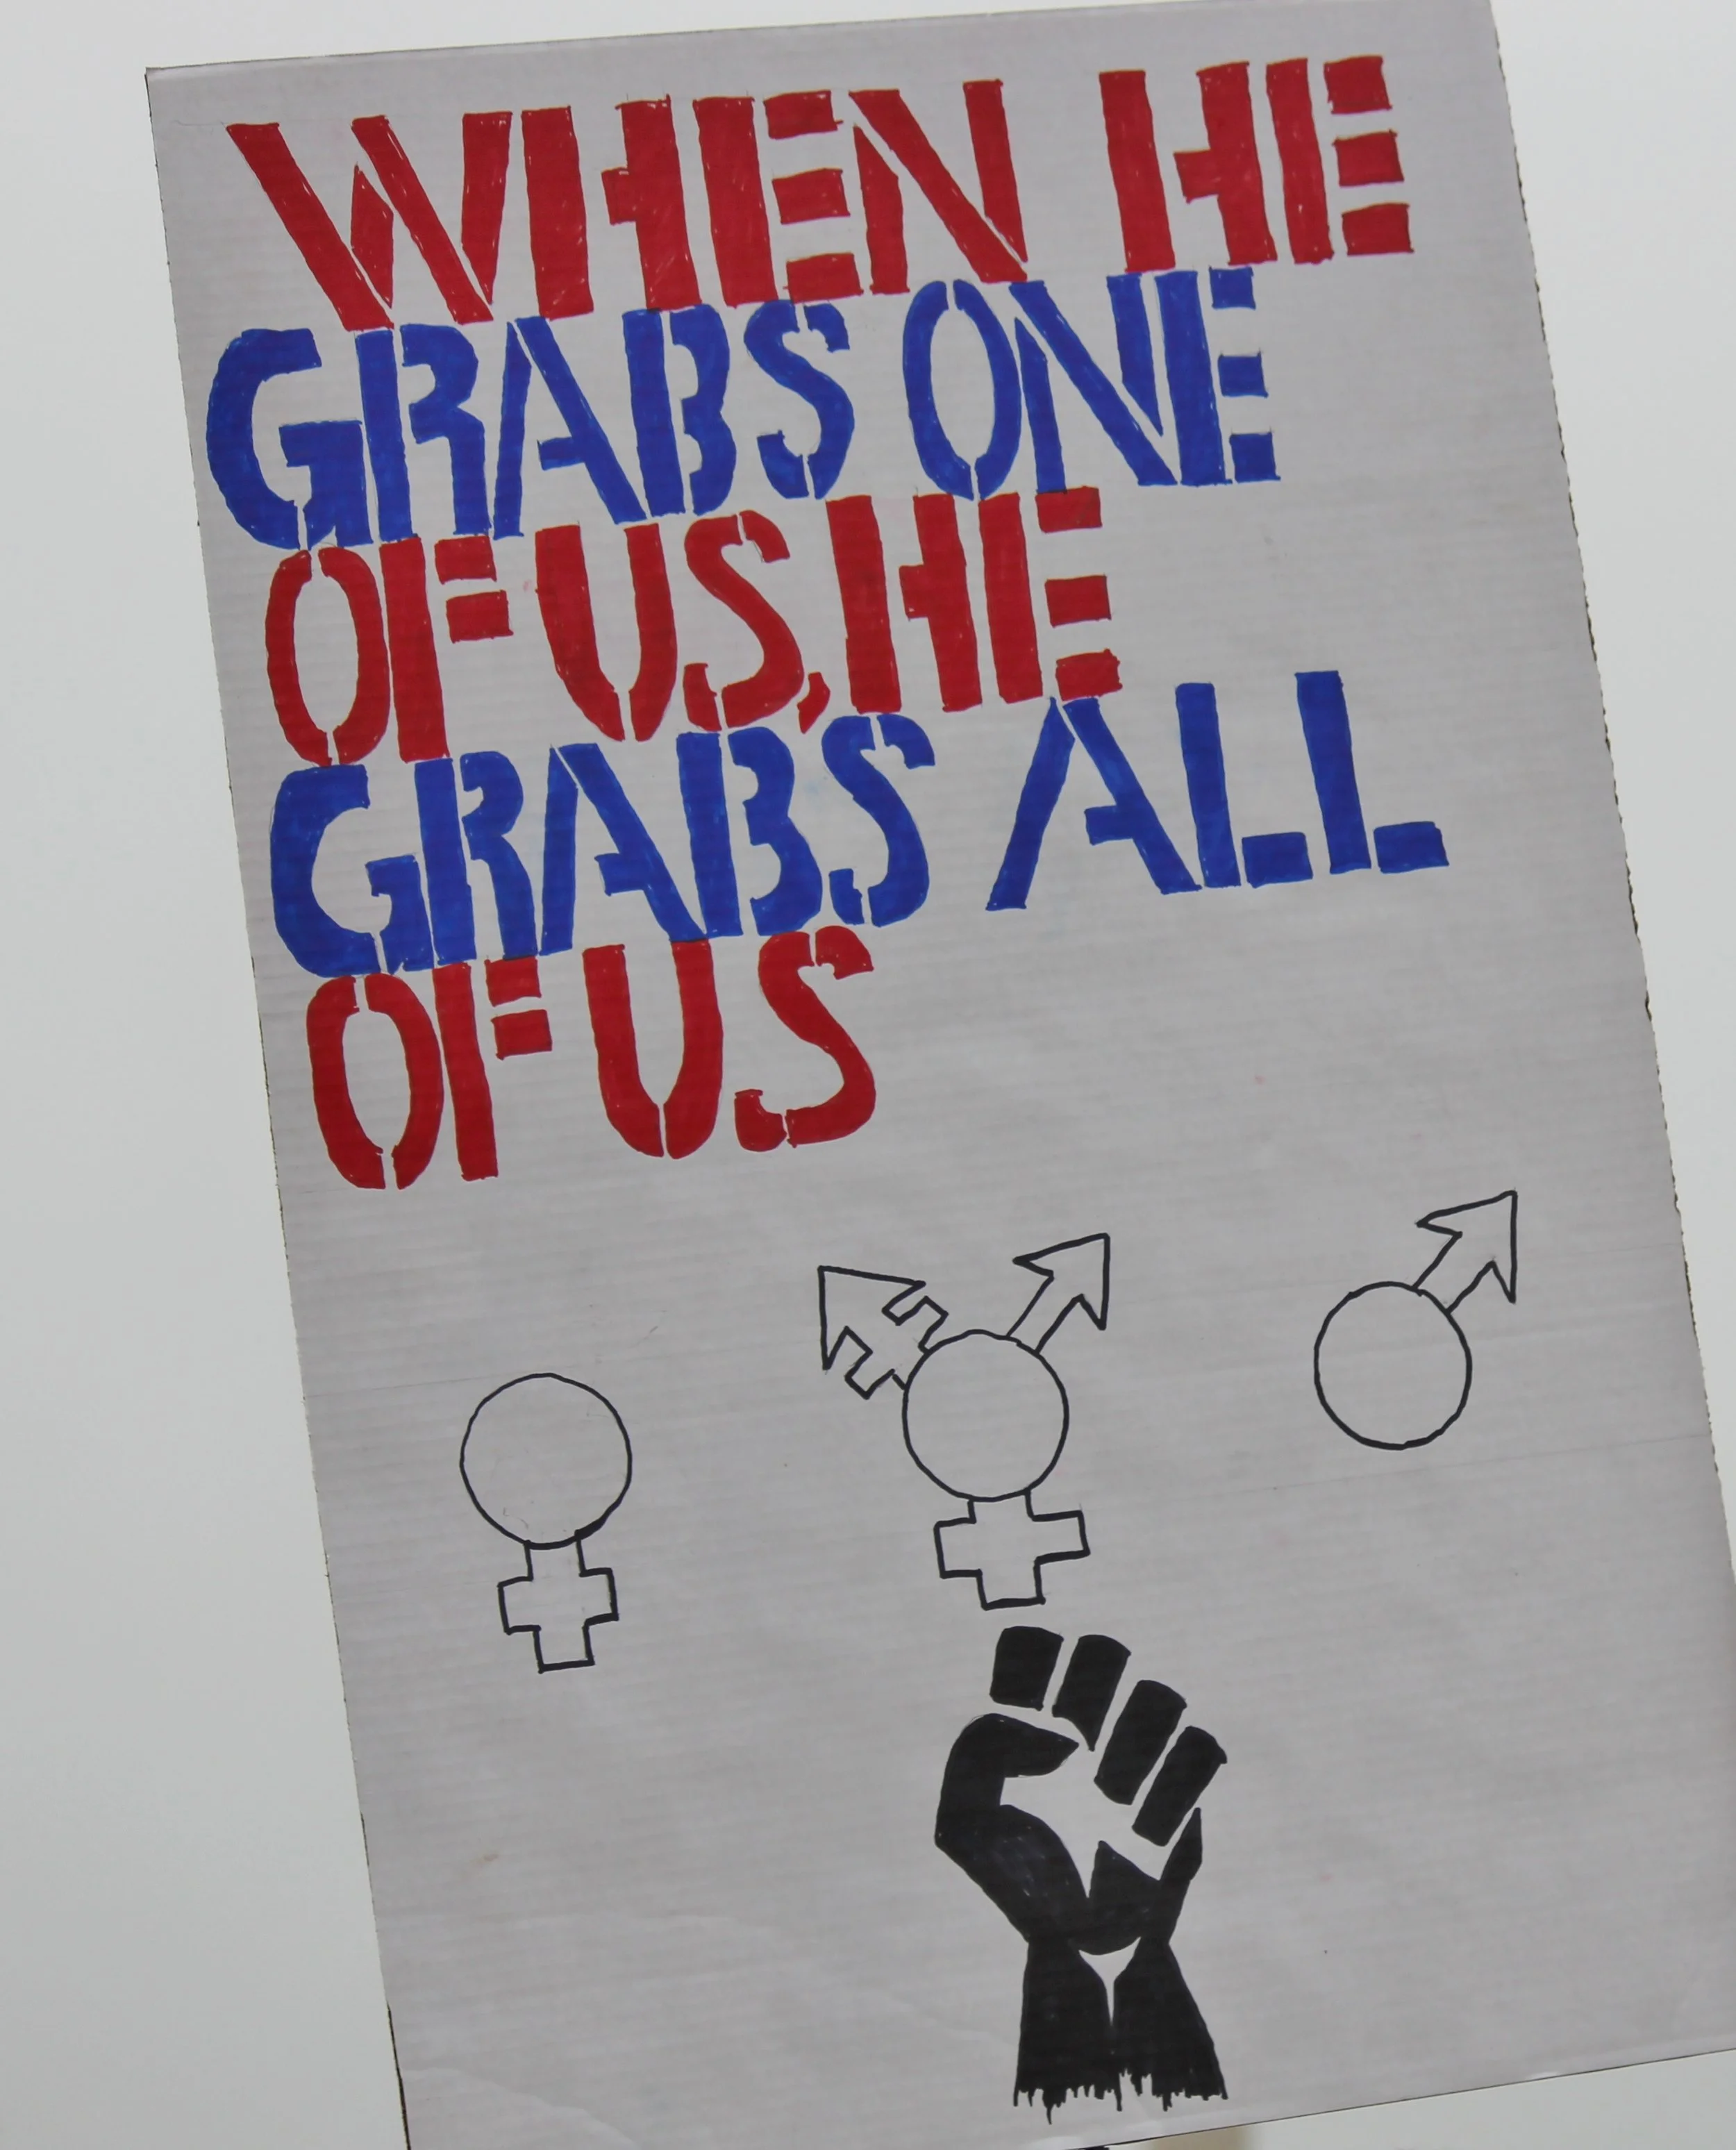 WHEN HE
GRABS ONE
OF US, HE
GRABS ALL
OF US